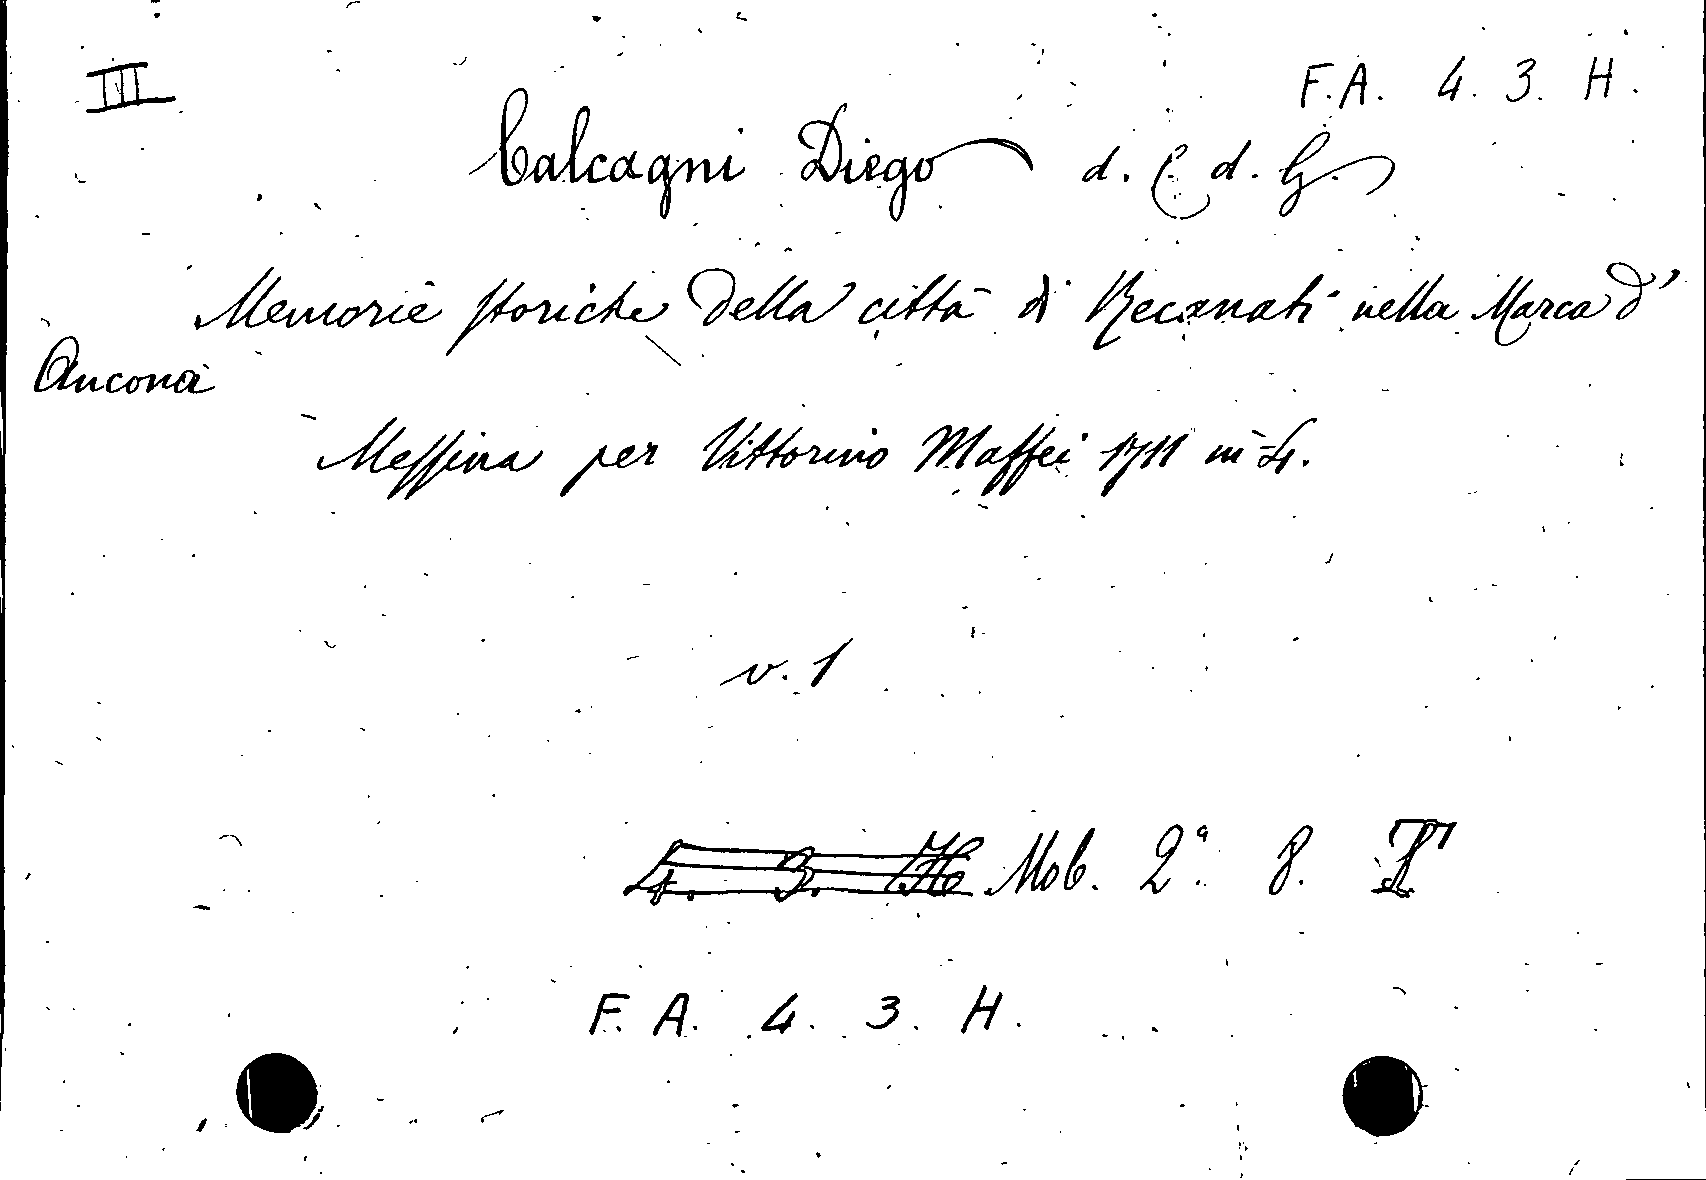 III
F.A. 4. 3. H.
Calcagni Diego d. C. d. G.
Memorie storiche della città di Recanati nella Marca d'
Ancona
Messina per Vittorino Maffei 1711 in-4.
v. 1
4. 3. H Mob. 2ª. 8. I
F. A. 4. 3. H.